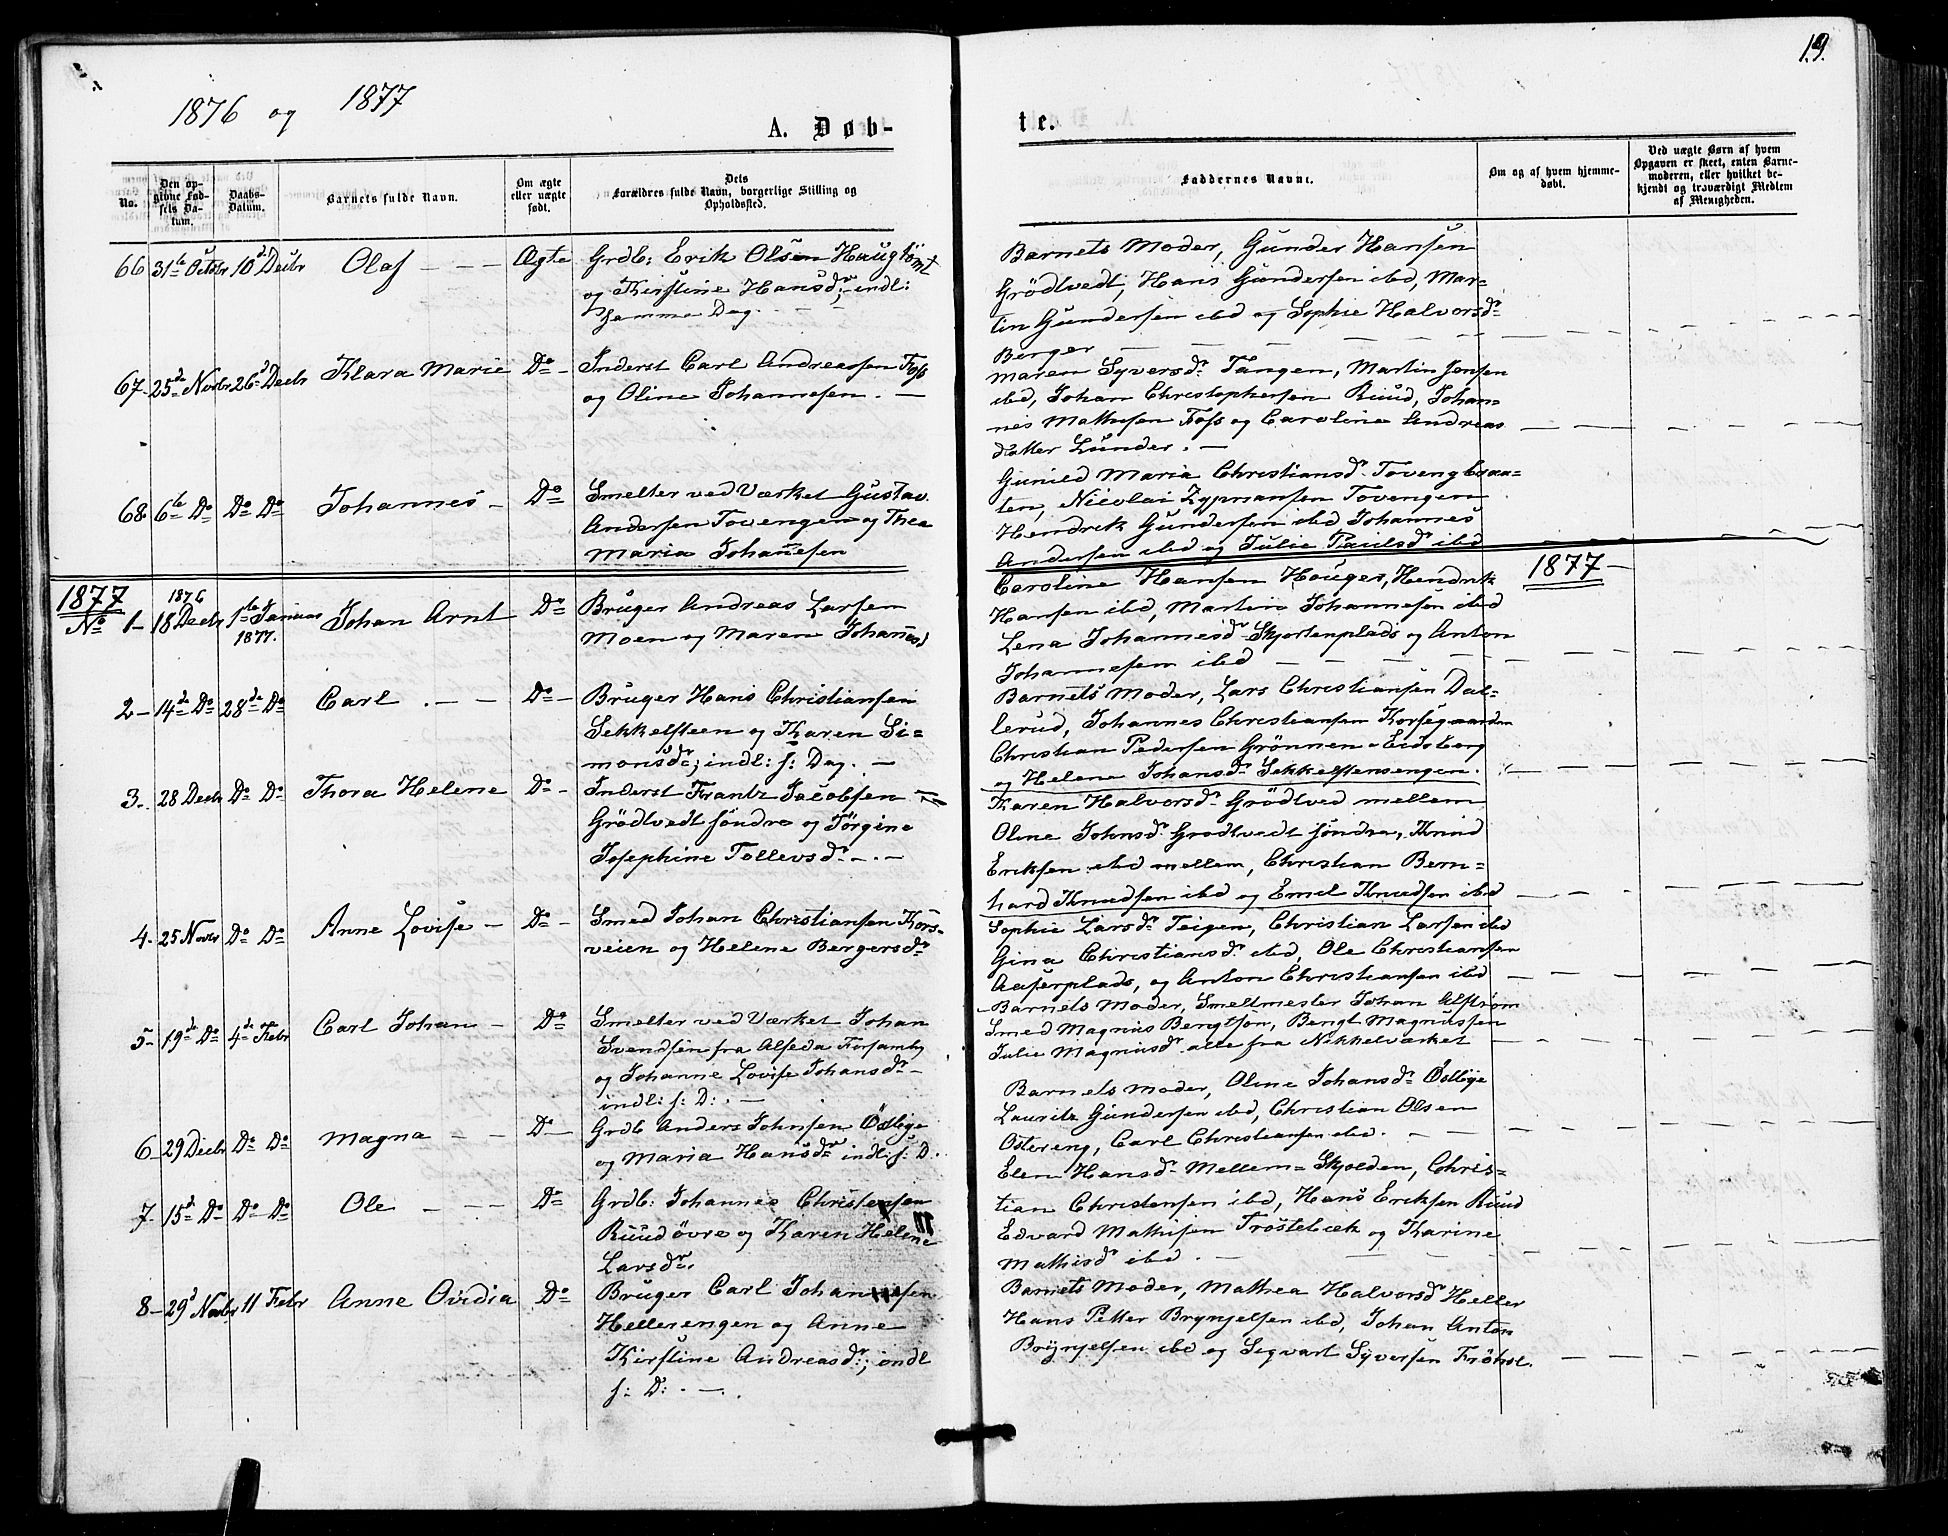 19.
1876 og 1877
A. Døb-
te.
No.
Den op-
givne Fød-
sels Da-
tum.
Daabs-
Datum.
Barnets fulde Navn.
Om ægte
eller uægte
født.
Dets
Forældres fulde Navn, borgerlige Stilling og
Opholdssted.
Faddernes Navne.
Om og af hvem hjemme-
døbt.
Ved uægte Børn af hvem
Opgaven er skeet, enten Barne-
moderen, eller hvilket be-
kjendt og troværdigt Medlem
af Menigheden.
66 31te Octobr 10d Decbr Olaf - - - Ægte Grdb: Erik Olsen Haugtomt
og Kirstine Hansdr; indl:
samme Dag. - -
Barnets Moder, Gunder Hansen
Grödtvedt, Hans Gundersen ibd, Mar-
tin Gundersen ibd og Sophie Halvorsdr
Berger
67- 25de Novbr 26d Decbr Klara Marie Do - Inderst Carl Andreassen Foss
og Oline Johannesen. -
Maren Syversdr Tangen, Martin Jensen
ibd, Johan Christophersen Ruud, Johan-
nes Mathisen Foss og Caroline Andreas
datter Lunder. -
68 6te Do Do Do Johannes - Do Smelter ved Værket Gustav
Andersen Tovengen og Thea
Maria Johannesen
Gunild Maria Christiansdr Tovengbraa-
ten, Nicolai Zypmansen Tovengen
Hendrik Gundersen ibd Johannes
Andersen ibd og Julie Paulsdr ibd
1877
1877 -
No 1- 1876 18 Decbr 1te Januar 1877. Johan Arnt Do Bruger Andreas Larsen
Moen og Maren Johannesd
Caroline Hansen Houger, Hendrik
Hansen ibd, Martin Johannesen ibd
Lena Johannesdr Skjortenplads og Anton
Johannesen ibd - - -
2- 14de Do 28de Do Carl . - - Do - Bruger Hans Christiansen
Sekkelsteen og Karen Si-
monsdr; indl: s: Dag. -
Barnets Moder, Lars Christiansen Dal-
lerud, Johannes Christiansen Korsegaarden
Christian Pedersen Grönnen i Eidsberg
og Helene Johansdr Sekkelstensengen.
3. 28 Decbr Do Do Thora Helene Do - Inderst Frantz Jacobsen
Grödtvedt söndre og Jörgine
Josephine Tollevsdr - . -
Karen Halvorsdr Grödtved mellem
Oline Johnsdr Grodtvedt söndre, Knud
Eriksen ibd mellem, Christian Bern-
hard Knudsen ibd og Emil Knudsen ibd
4- 25 Novbr Do Do Anne Lovise - Do - Smed Johan Christiansen Kors-
veien og Helene Bergersdr
Sophie Larsdr Teigen, Christian Larsen ibd
Gina Christiansdr ibd, Ole Christiansen
Aaserplads, og Anton Christiansen ibd
5- 19de Do 4de Febr Carl Johan - Do Smelter ved Værket Johan
Svendsen fra Alseda Forsamby
og Johanne Lovise Johansdr -
indl: s: D: . -
Barnets Moder, Smeltmester Johan Alström
Smed Magnus Bengtson, Bengt Magnussen
Julie Magnusdr alle fra Nikkelværket
6- 29 Decbr Do Do Magna - - Do - Grdb Anders Johnsen Östbye
og Maria Hansdr indl: s: D.
Barnets Moder, Oline Johansdr Östbye
Lauritz Gundersen ibd, Christian Olsen
Ostereng, Carl Christiansen ibd.
7- 15d Do Do Do Ole - - - Do Grdb: Johannes Christensen
Ruud övre og Karen Helene
Larsdr.
Elen Hansdr Mellem-Skjolden, Chris-
tian Christensen ibd, Hans Eriksen Ruud
Edvard Mathisen Trostebæk og Karine
Mathisdr ibd . -
8- 29d Novbr 11 Febr Anne Ovidia Do Bruger Carl Johannesen
Hellerengen og Anne
Kirstine Andreasdr; indl
s: D: . - .
Barnets Moder, Mathea Halvorsdr Heller
Hans Petter Brynjelsen ibd, Johan Anton
Brynjelsen ibd og Sigvart Syversen Fröhol.